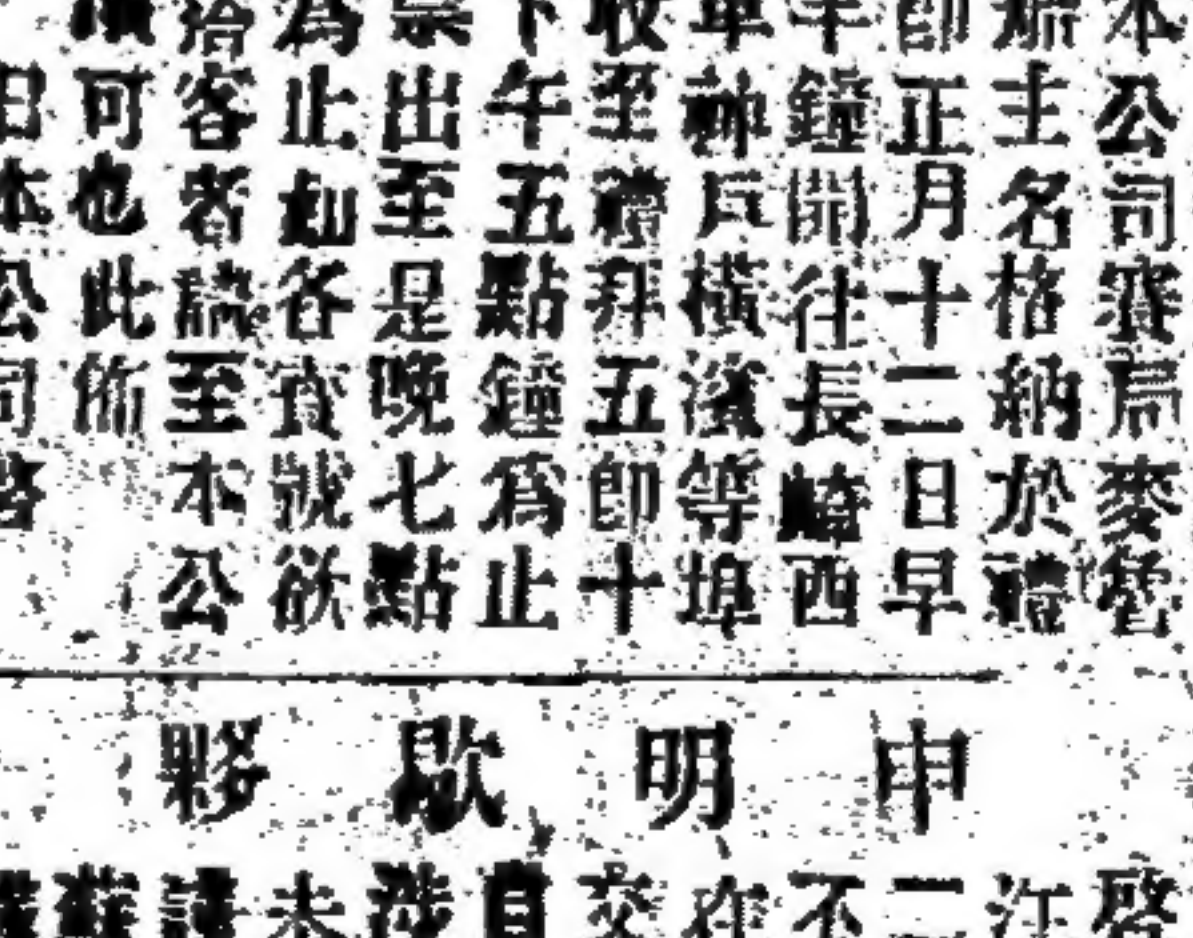 本公司賚局麥督
船主名格納於禮
即正月十二日早
半鐘開往長崎西
車神戶橫濱等埠
收至禮拜五即十
下午五點鐘為止
票出至是晚七點
為止如各寶號欲
搭客者請至本公
可也此佈
日本公司啓
申明歇夥
啓
江
二
不
在
交
自
涉
未
謹
蘇